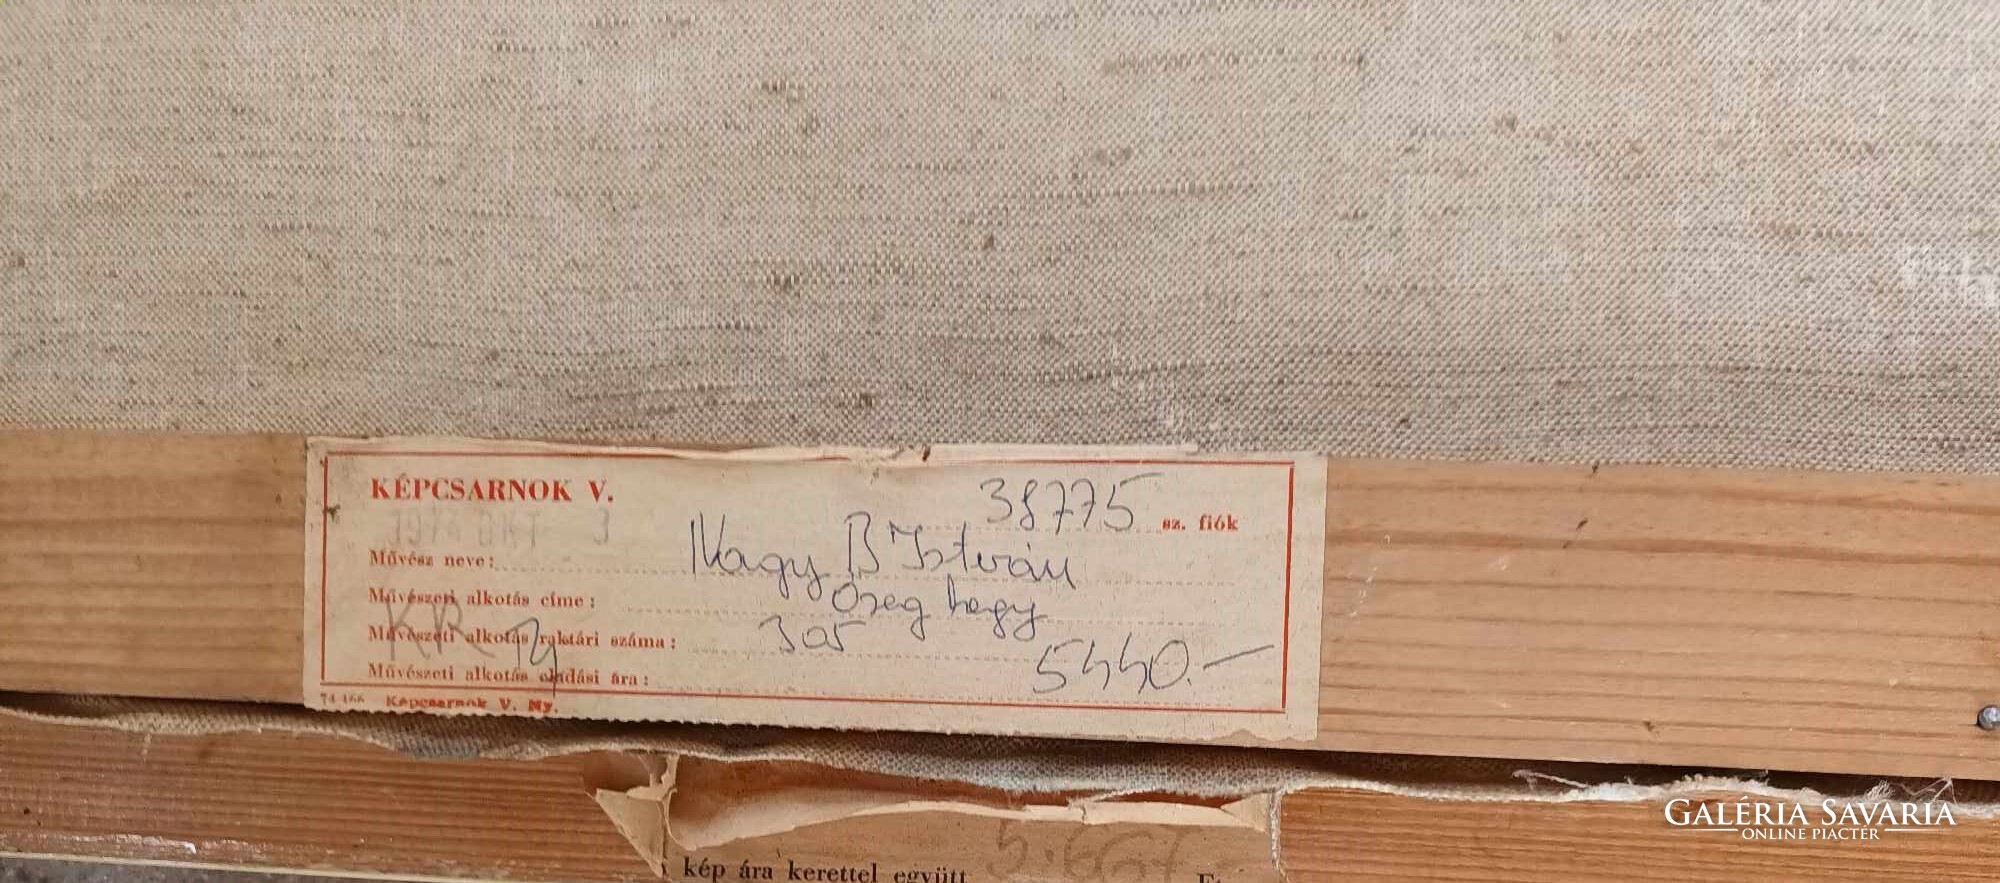 KÉPCSARNOK V.
38775 sz. fiók
OKT 3
Művész neve: Nagy B István
Művészeti alkotás címe: Öreg hegy
Művészeti alkotás raktári száma: 305
KR
Művészeti alkotás eladási ára: 5440.-
74 166 Képcsarnok V. Ny.
kép ára kerettel együtt
GALÉRIA SAVARIA
ONLINE PIACTÉR